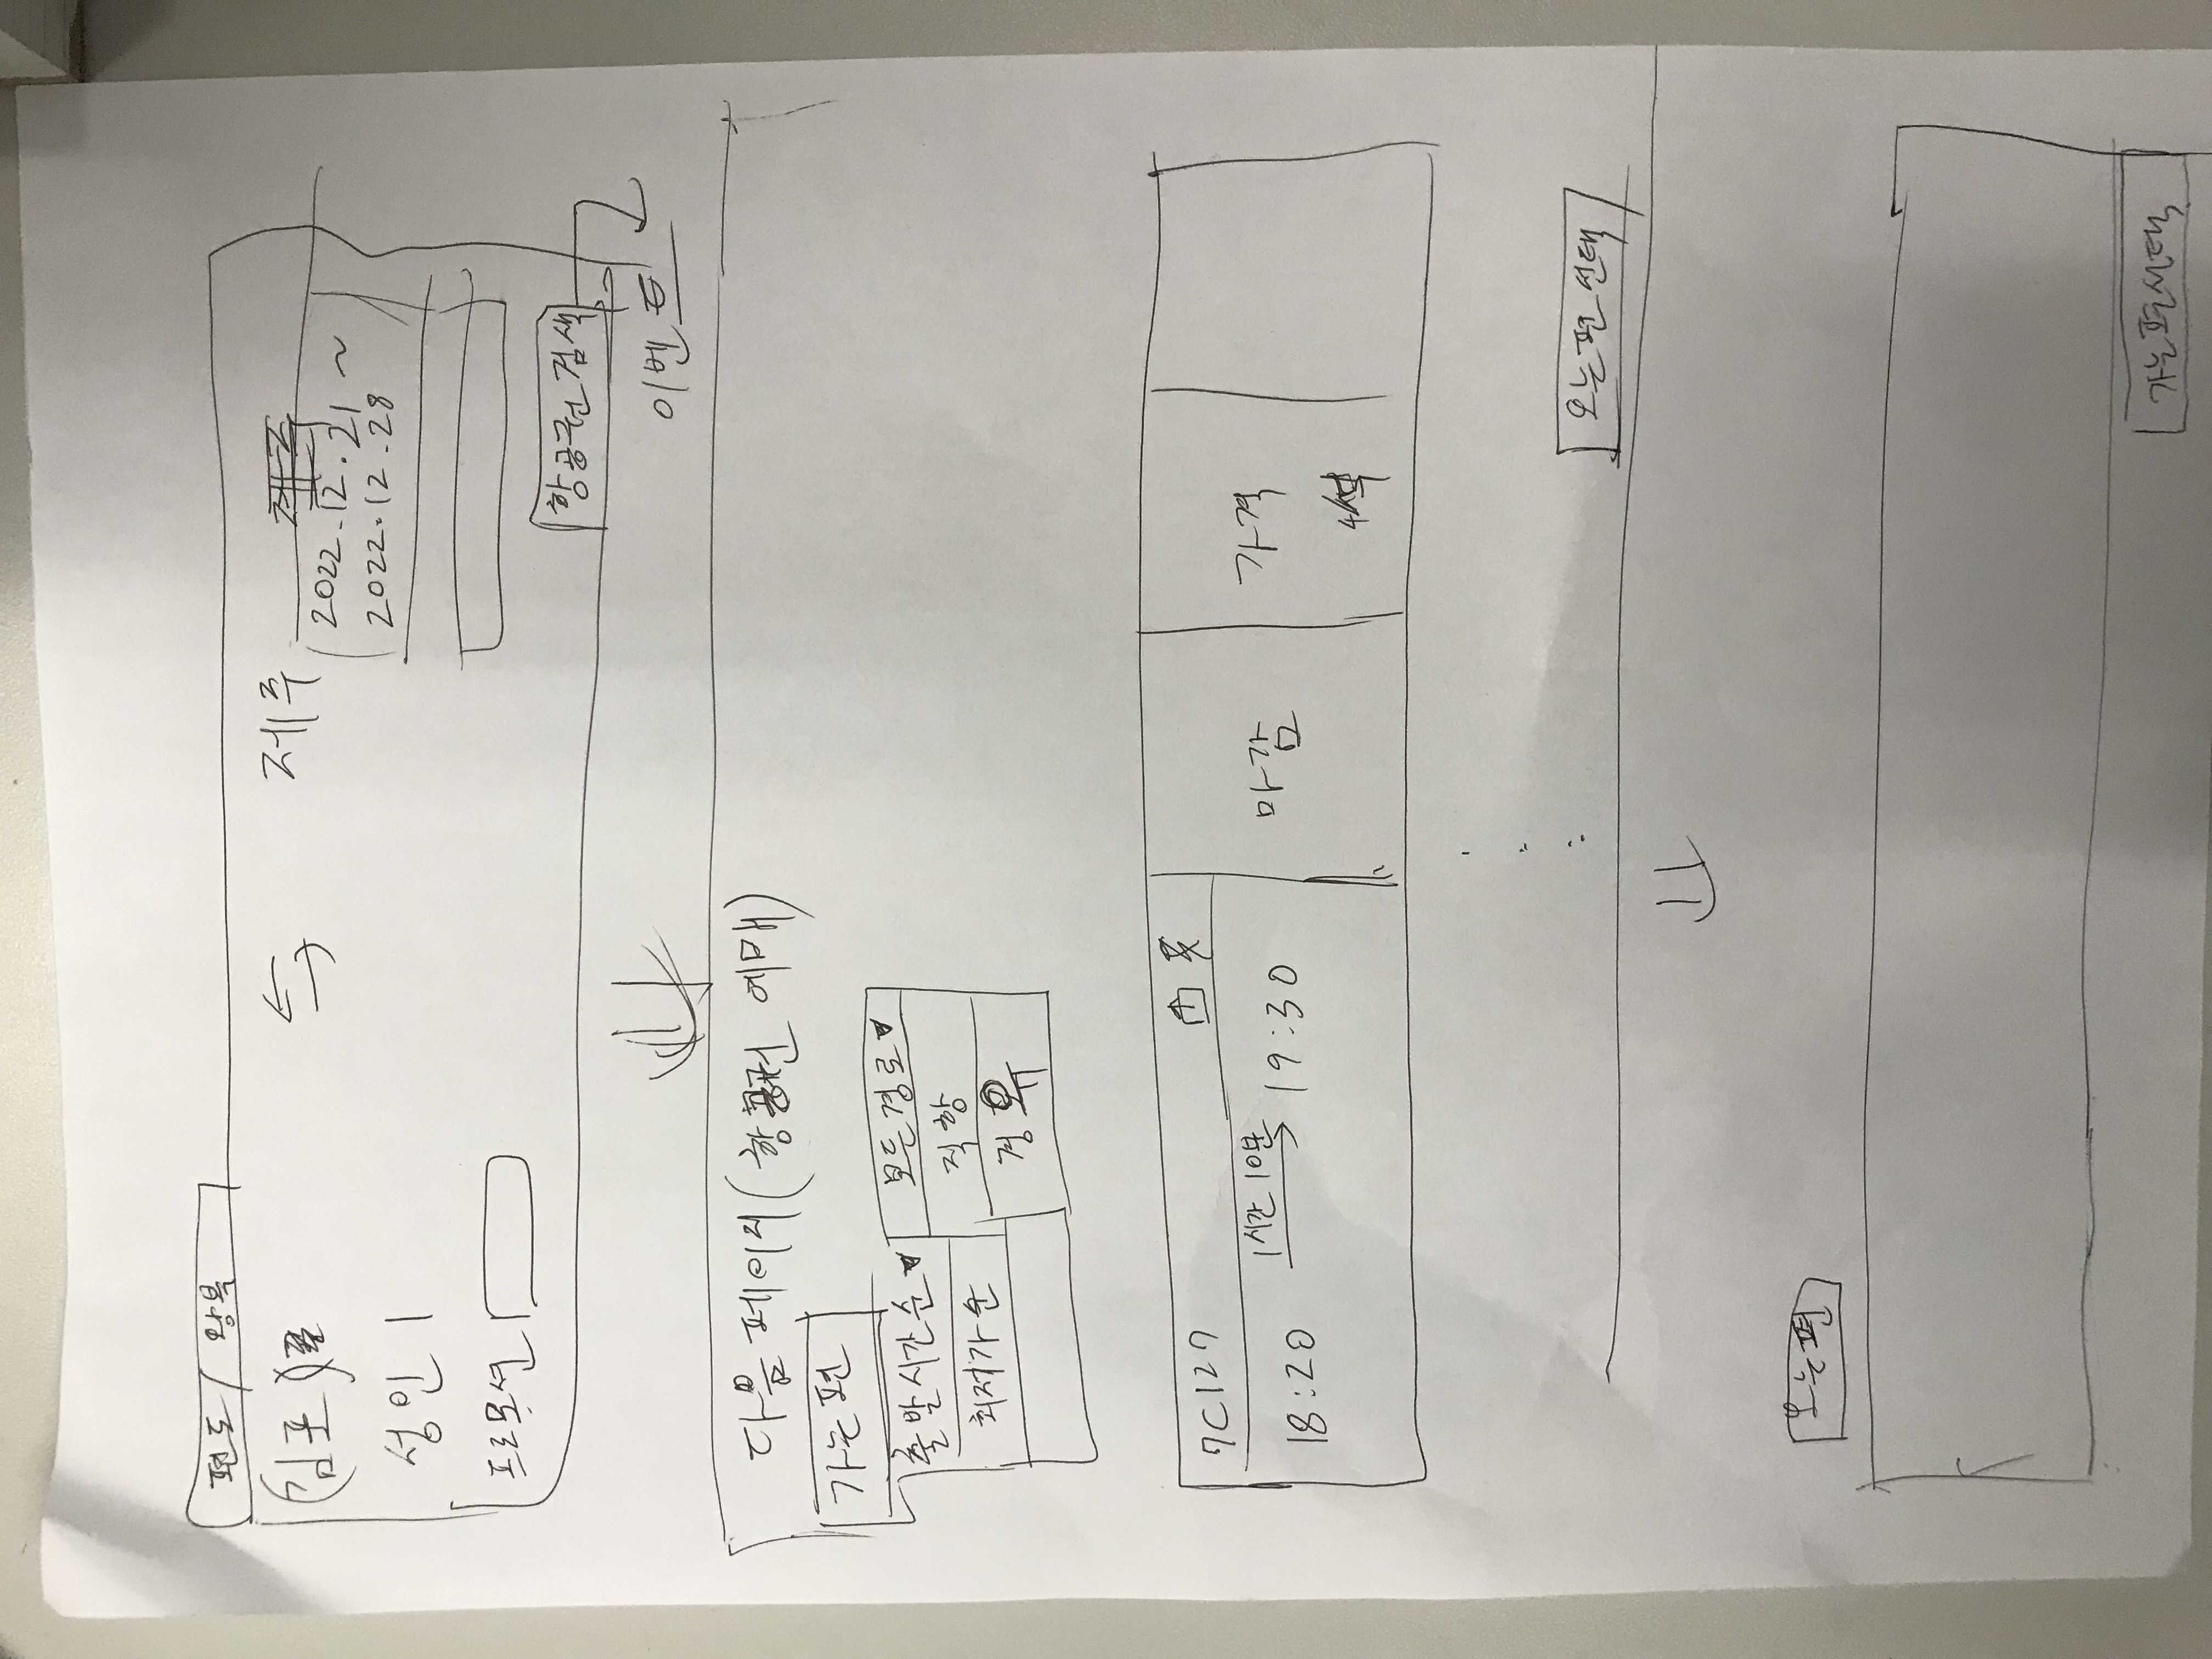 편도 / 왕복
(김포)
제주
2022.12.21 ~
2022.12.28
성인 1
프로모션
항공권 검색
이벤트
다음 페이지 (항공권 예매)
가는편
출발시간순▼
모든경로▼
최저가순
직항
경유
7C127
18:20
1시간 10분
19:30
마감
가격
4석
오는편 선택
오는편
가는편선택